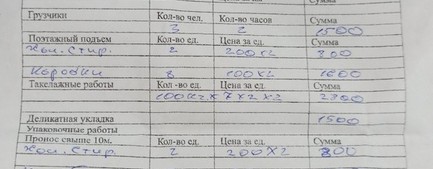 Сумма
Грузчики Кол-во чел. Кол-во часов Сумма
3 2 1500
Поэтажный подъем Кол-во ед. Цена за ед. Сумма
Хол. Стир. 2 200х2 800
Коробки 8 100х2 1600
Такелажные работы Кол-во ед. Цена за ед. Сумма
100кг х 7 х 2 х 2
Деликатная укладка 1500
Упаковочные работы
Пронос свыше 10м. Кол-во ед. Цена за ед. Сумма
Хол. Стир. 2 200х2 800